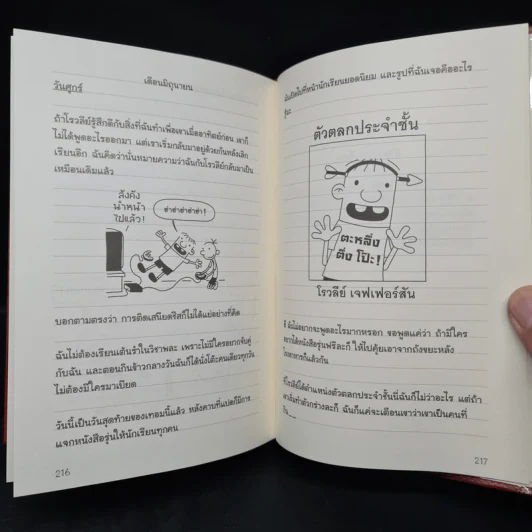 เดือนมิถุนายน
วันศุกร์
ถ้าโรวลีย์รู้สึกดีกับสิ่งที่ฉันทำเพื่อเขาเมื่ออาทิตย์ก่อน เขาก็
ไม่ได้พูดอะไรออกมา แต่เราเริ่มกลับมาอยู่ด้วยกันหลังเลิก
เรียนอีก ฉันคิดว่านั่นหมายความว่าฉันกับโรวลีย์กลับมาเป็น
เหมือนเดิมแล้ว
สังคัง
นำหน้า
ไปแล้ว!
ฮ่าฮ่าฮ่าฮ่าฮ่า!
บอกตามตรงว่า การติดเสนียดชีสก็ไม่ได้แย่อย่างที่คิด
ฉันไม่ต้องเรียนเต้นรำในวิชาพละ เพราะไม่มีใครอยากจับคู่
กับฉัน และตอนกินข้าวกลางวันฉันก็ได้นั่งโต๊ะคนเดียวทุกวัน
ไม่ต้องมีใครมาเบียด
วันนี้เป็นวันสุดท้ายของเทอมนี้แล้ว หลังคาบที่แปดก็มีการ
แจกหนังสือรุ่นให้นักเรียนทุกคน
216
ฉันเปิดไปที่หน้านักเรียนยอดนิยม และรูปที่ฉันเจอคืออะไร
รู้มะ
ตัวตลกประจำชั้น
ตะหลึ่ง
ตึ่ง โป๊ะ!
โรวลีย์ เจฟเฟอร์สัน
ฉันไม่อยากจะพูดอะไรมากหรอก ขอพูดแค่ว่า ถ้ามีใคร
ได้หนังสือรุ่นฟรีละก็ ให้ไปคุ้ยเอาจากถังขยะหลัง
อาหารก็แล้วกัน
โรวลีย์ได้ตำแหน่งตัวตลกประจำชั้นนี่ฉันก็ไม่ว่าอะไร แต่ถ้า
ทำตัวกร่างละก็ ฉันก็แค่จะเตือนเขาว่าเขาเป็นคนที่
217